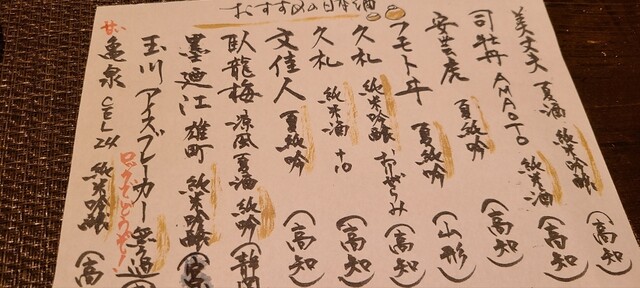 おすすめの日本酒
美丈夫 夏酒 純米吟醸 (高知)
司牡丹 AMAOTO 純米酒 (高知)
安芸虎 夏純吟 (高知)
フモトヰ 夏純吟 (山形)
久礼 純米吟醸 おりがらみ (高知)
久礼 純米酒 +10 (高知)
文佳人 夏純吟 (高知)
臥龍梅 涼風夏酒 純吟 (静岡
墨廼江 雄町 純米吟醸 (宮
玉川 アイスブレーカー 無濾過
ロックでもどうぞ!
甘 亀泉 CEL24 純米吟醸 (高